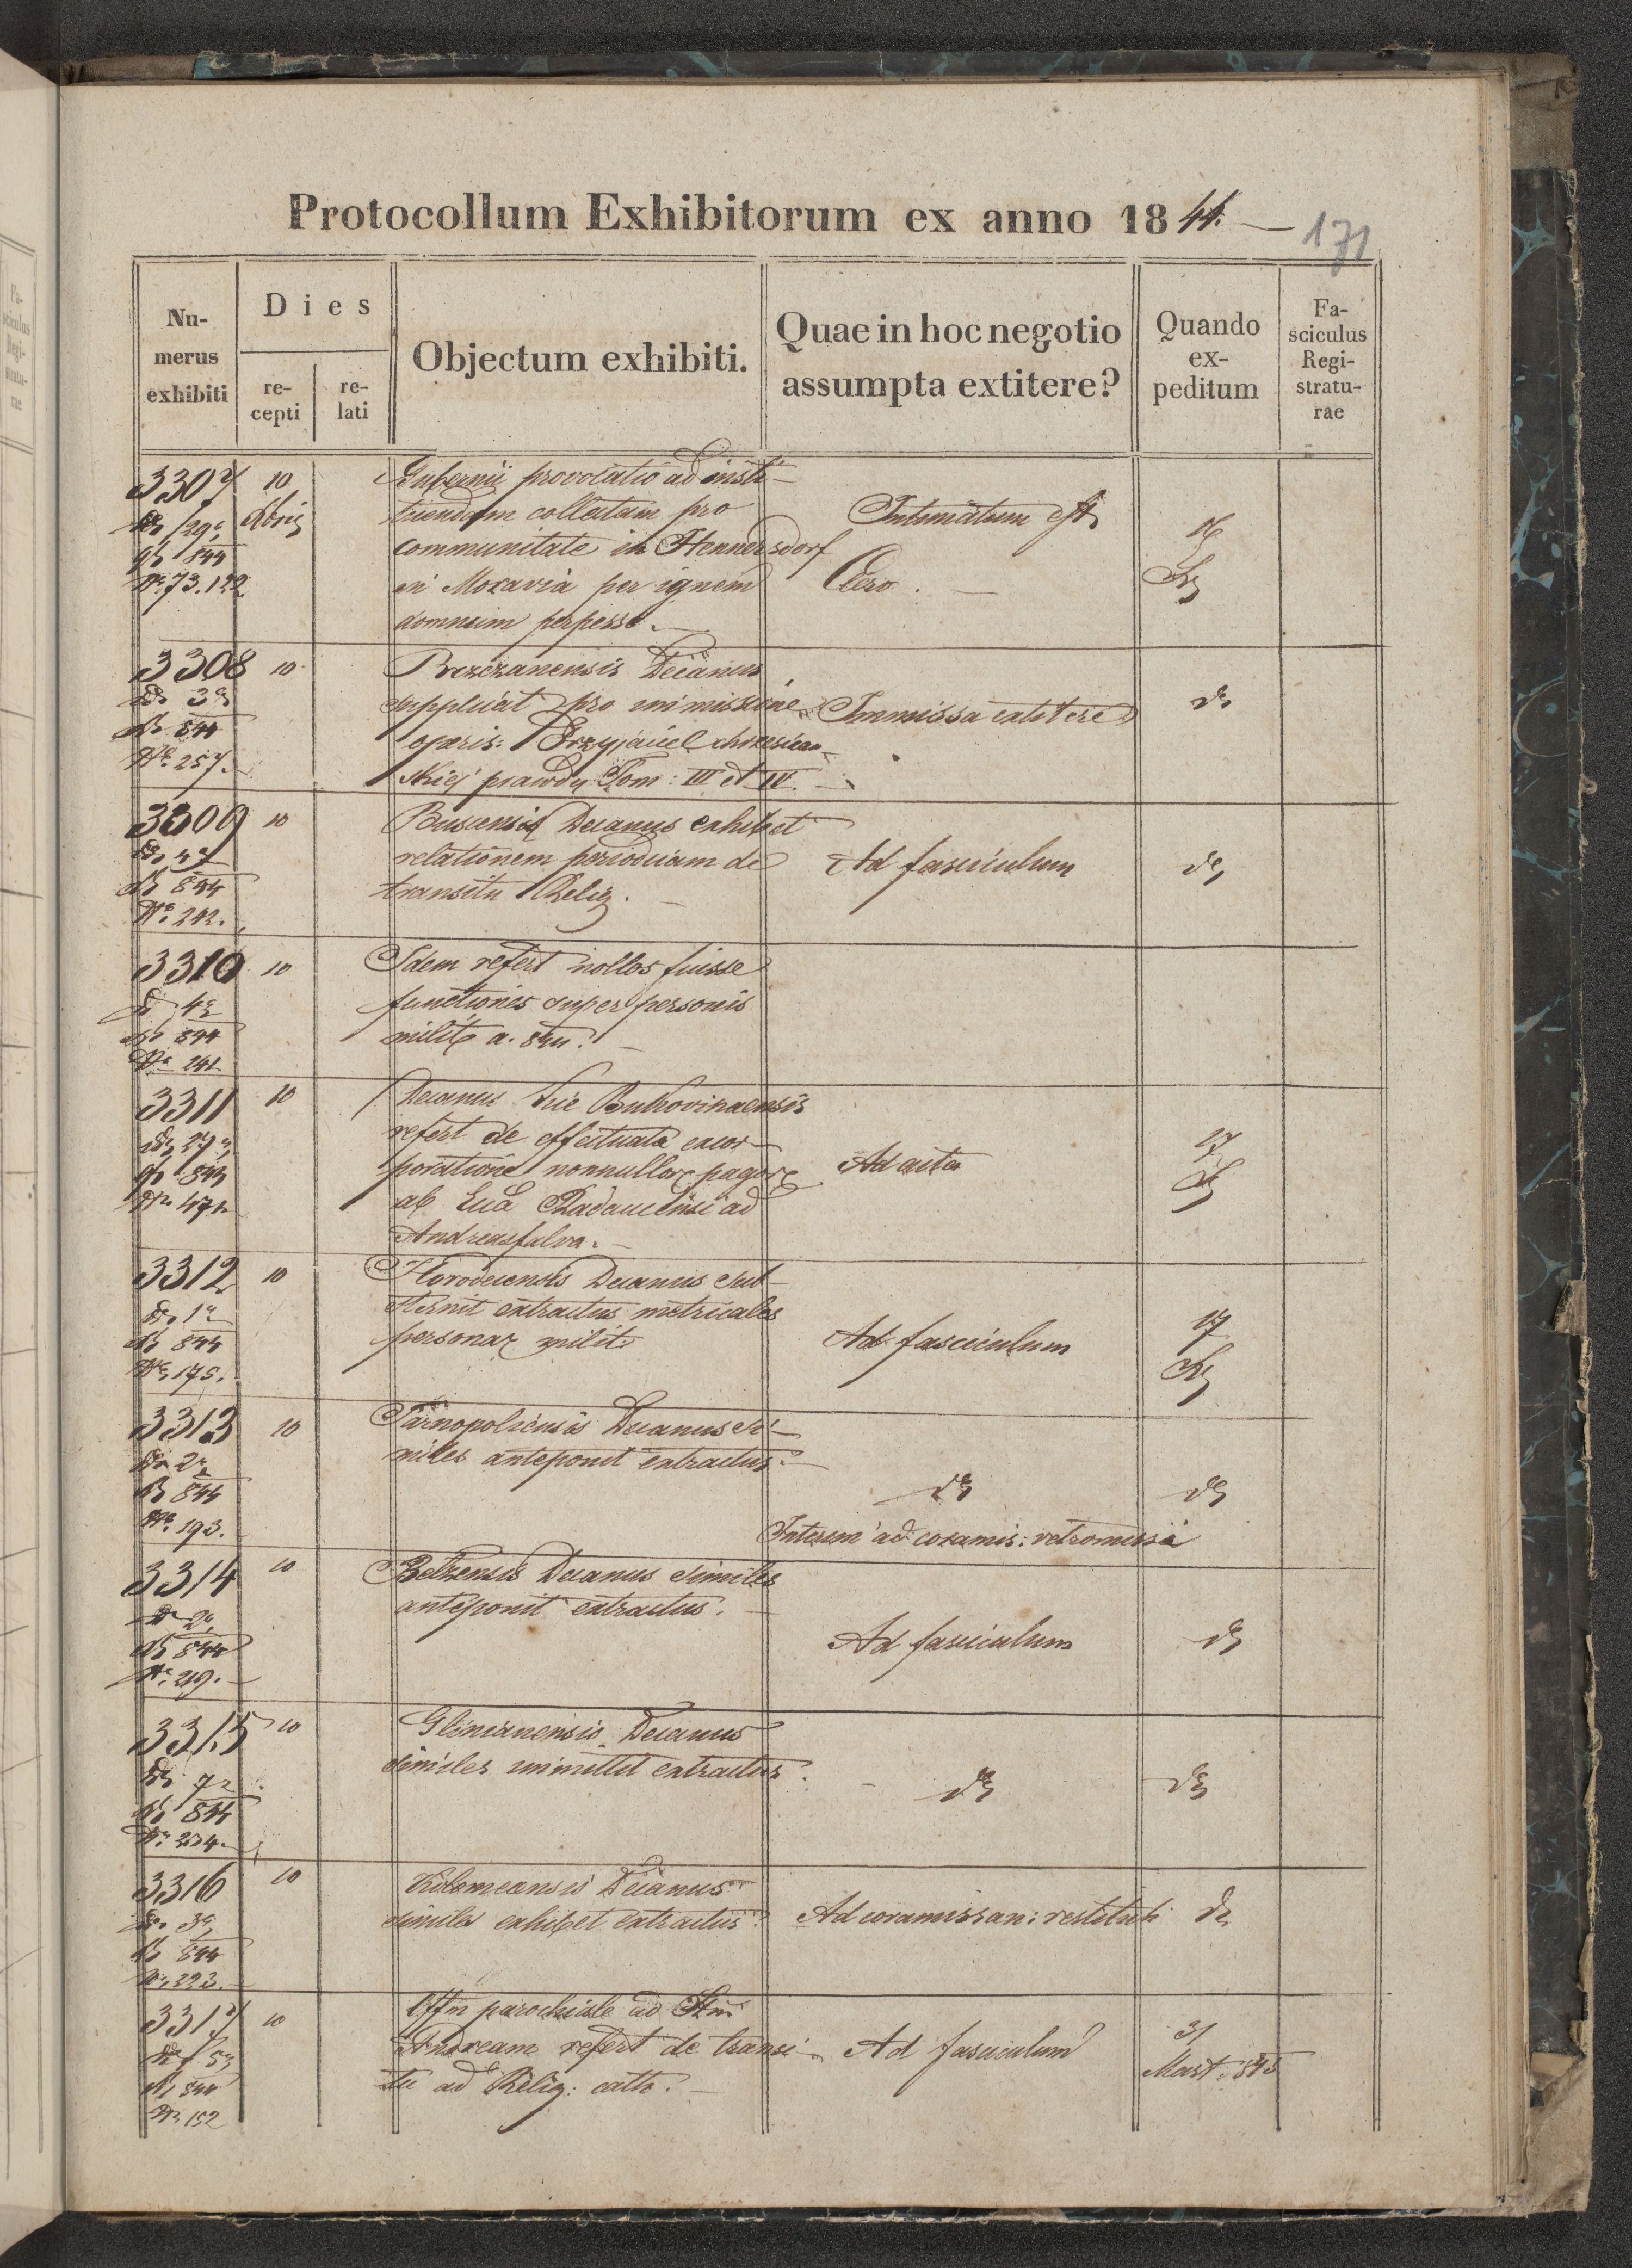 Protocollum Exhibitorum ex anno 1844. 171
Nu-
merus
exhibiti
Dies
re-
cepti
re-
lati
Objectum exhibiti.
Quae in hoc negotio
assumpta extitere?
Quando
ex-
peditum
Fa-
sciculus
Regi-
stratu-
rae
3307 10
Gubernii provocatio ad insti-
tuendam collectam pro
communitate in Hennersdorf
in Moravia per ignem
damnum perpessa.
844
No 73.122
Intimatum est
Clero.
16
3308 10
3a
844
No 257.
Brzezanensis Decanus
supplicat pro immissione
operis: Przyjaciel chrześcian-
skiej prawdy Tom: III et IV.
Immissa extitere
do
3309 10
844
No 242.
Buscensis Decanus exhibet
relationem periodicam de
transitu Relig.
Ad fasciculum
do
3310 10
4a
844
No 241
Idem refert nullas fuisse
functiones super personis
milit a. 844.
3311 10
27a
844
No 471
Decanus Bukovinaensis
refert de effectuata excor-
poratione nonnullor pagor
ab Ecca Radaucensi ad
Andreasfalva.
Ad acta
17
3312 10
1a
844
No 175.
Horodecensis Decanus sub-
sternit extractus metricales
personar milit
Ad fasciculum
17
3313 10
2a
844
No 193.
Tarnopoliensis Decanus si-
miles anteponit extractus.
do
do
Interim ad coramis: retromissa
3314 10
2a
844
No 219.
Belzensis Decanus similes
anteponit extractus.
Ad fasciculum
do
3315 10
7a
844
No 234.
Glinianensis Decanus
similes immittit extractus.
do
do
3316 10
3a
844
No 223.
Kolomeansis Decanus
similes exhibet extractus
Ad coramissan: restituti
do
3317 10
5a
844
No 152
Offm parochiale ad Stm
Andream refert de transi-
tu ad Relig: cath.
Ad fasciculum
31
Mart. 845